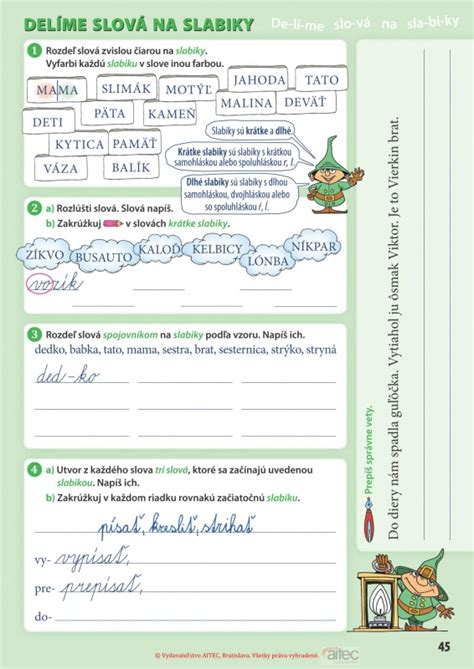 DELÍME SLOVÁ NA SLABIKY
De-lí-me slo-vá na sla-bi-ky
1 Rozdeľ slová zvislou čiarou na slabiky.
Vyfarbi každú slabiku v slove inou farbou.
MAMA SLIMÁK MOTÝĽ JAHODA TATO
DETI PÄTA KAMEŇ MALINA DEVÄŤ
KYTICA PAMÄŤ
VÁZA BALÍK
Slabiky sú krátke a dlhé.
Krátke slabiky sú slabiky s krátkou
samohláskou alebo spoluhláskou r, l.
Dlhé slabiky sú slabiky s dlhou
samohláskou, dvojhláskou alebo
so spoluhláskou ŕ, ĺ.
2 a) Rozlúšti slová. Slová napíš.
b) Zakrúžkuj v slovách krátke slabiky.
ZÍKVO BUSAUTO KALOĎ KELBICY LÓNBA NÍKPAR
vozík
3 Rozdeľ slová spojovníkom na slabiky podľa vzoru. Napíš ich.
dedko, babka, tato, mama, sestra, brat, sesternica, strýko, stryná
ded-ko
4 a) Utvor z každého slova tri slová, ktoré sa začínajú uvedenou
slabikou. Napíš ich.
b) Zakrúžkuj v každom riadku rovnakú začiatočnú slabiku.
písať, kresliť, strihať
vy- vypísať,
pre- prepísať,
do-
Prepíš správne vety.
Do diery nám spadla guľôčka. Vytiahol ju ôsmak Viktor. Je to Vierkin brat.
45
© Vydavateľstvo AITEC, Bratislava. Všetky práva vyhradené.
aitec